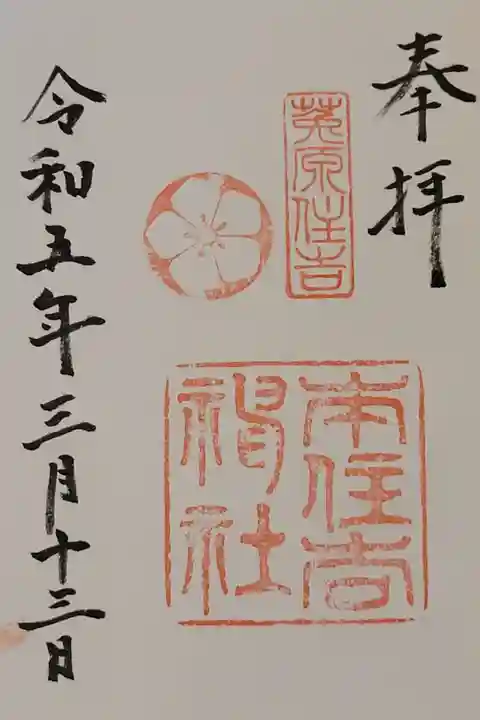 奉拝
莵原住吉
本住吉
神社
令和五年三月十三日